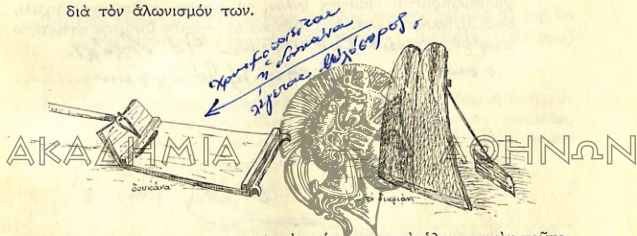 διὰ τὸν ἁλωνισμόν των.
Χρησιμοποιεῖται
ἡ δουκάνα
λέγεται
ΑΚΑΔΗΜΙΑ ΑΘΗΝΩΝ
δουκάνα
τὸ δικριάνι